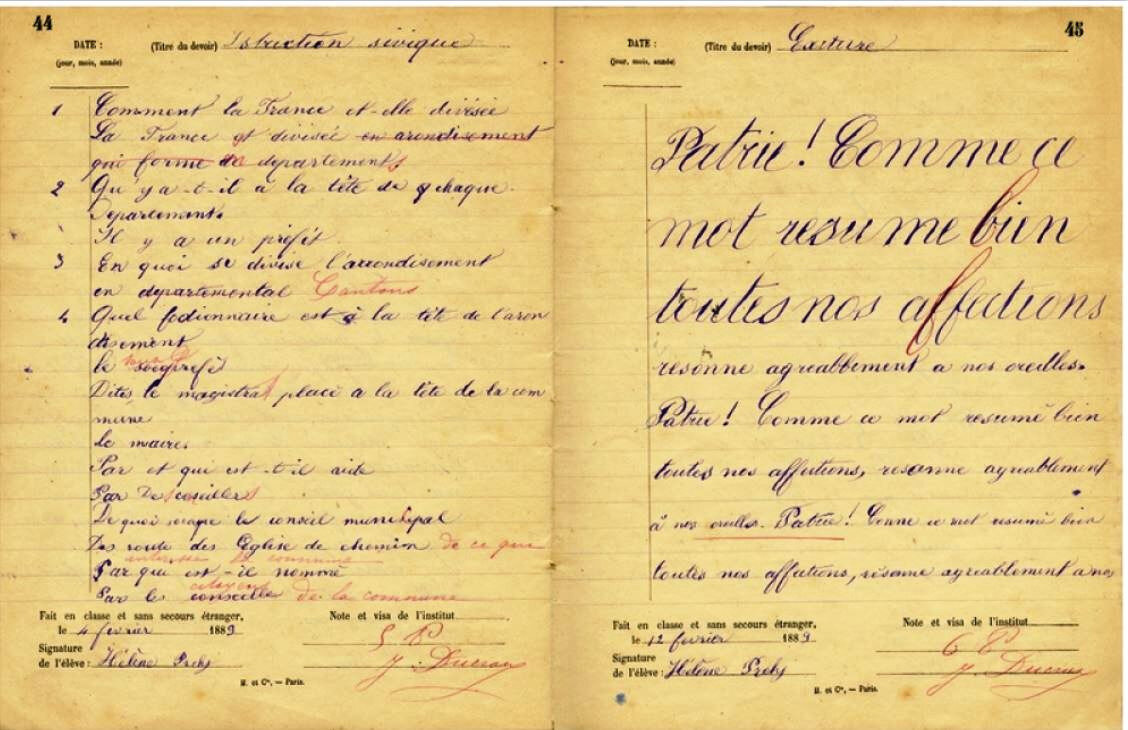 44
DATE :
(Titre du devoir) Istruction sivique
(jour, mois, année)
1 Comment la France et-elle divisée
La France est divisée en arondisement
qui forme de departements
2 Qu'y a-t-il a la tête de chaque
Departement.
Il y a un préfet.
3 En quoi se divise l'arrondisement
en departemental Cantons
4 Quel fodionnaire est à la tête de l'aron
disement
le préfet
Dites le magistrat placé a la tête de la com
mune
le maire.
Par et qui est-t-il aide
Par De conseillers
De quoi ocupe le conseil municipal
Des route des Eglise de chemin de ce qui
interesse la commune
Par qui est-il nommé
citoyens
Par les conseille de la commune
Fait en classe et sans secours étranger,
le 4 fevrier 1889
Signature
de l'élève : Hélène
Note et visa de l'institut
5 P
J. Ducray
M. et Cie, — Paris.
45
DATE :
(Titre du devoir) Ecriture
(jour, mois, année)
Patrie ! Comme ce
mot resume bien
toutes nos affections
resonne agreablement a nos oreilles.
Patrie ! Comme ce mot resumé bien
toutes nos affections, resonne agreablement
à nos oreilles. Patrie ! Comme ce mot resumé bien
toutes nos affections, résonne agreablement a nos
Fait en classe et sans secours étranger,
le 12 fevrier 1889
Signature
de l'élève : Hélène
Note et visa de l'institut
6 P
J. Ducray
M. et Cie, — Paris.